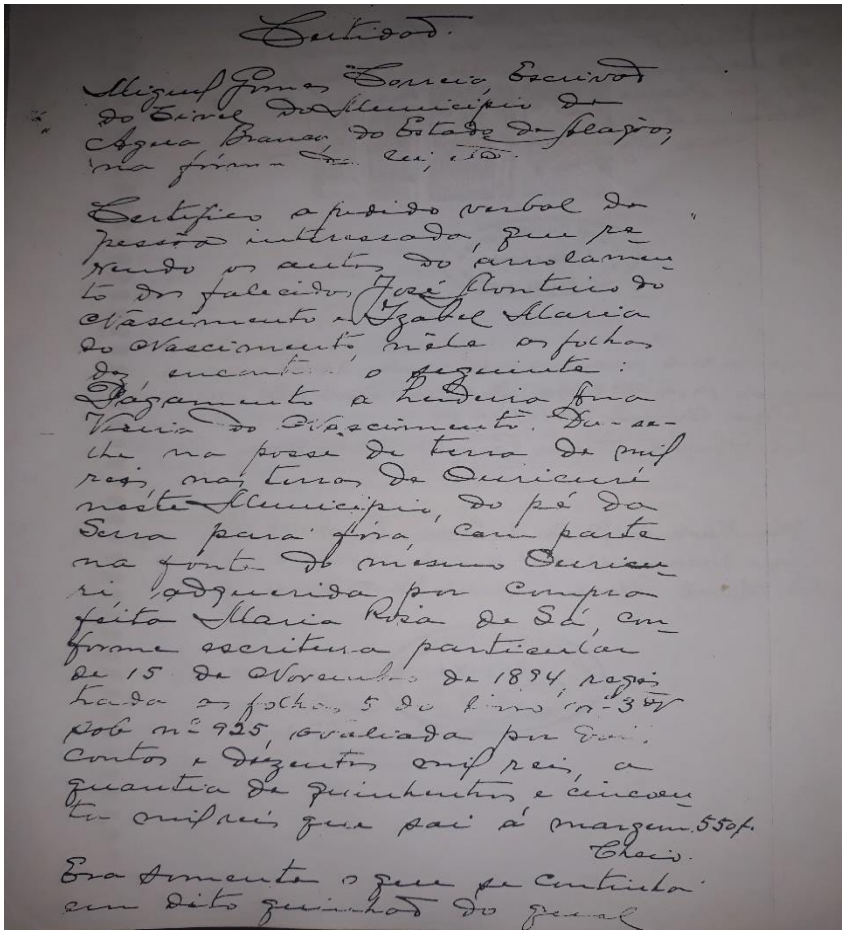 Certidão.
Miguel Gomes Correia, Escrivão
do Civel do Municipio de
Agua Branca, do Estado de Alagôas,
na fórma da lei, etc.
Certifico a pedido verbal da
pessôa interessada, que re-
vendo os autos do arrolamen-
to dos falecidos, José Monteiro do
Nascimento e Izabel Maria
do Nascimento, nêle as folhas
dez encontrei o seguinte:
Pagamento a herdeira Ana
Vieira do Nascimento. Da-se-
lhe na posse de terra de mil
reis, nas terras de Ouricurí
neste Municipio, do pé da
Serra para fóra, com parte
na fonte do mesmo Ouricu-
rí, adquerida por compra
feita Maria Rosa de Sá, con-
forme escritura particular
de 15 de Novembro de 1894, regis
trada as folhas 5 do livro nº 3
sob nº 925, avaliada por dois
contos e duzentos mil reis, a
quantia de quinhentos e cincoen-
ta mil reis que sai á margem. 550$.
Cheio.
Era sómente o que se continha
em dito quinhão do qual